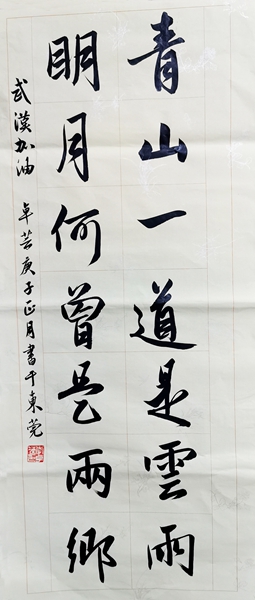 青山一道是雲雨
明月何曾是兩鄉
武漢加油 卓 庚子正月書于東莞